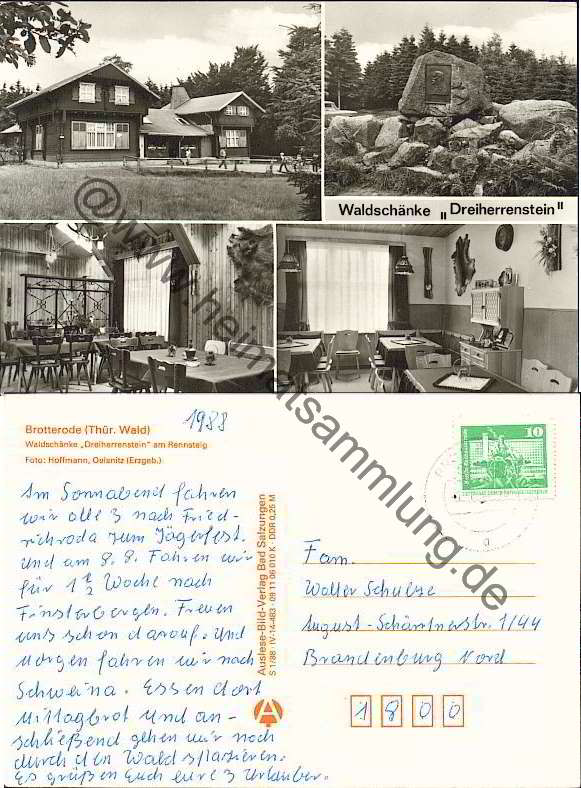 Waldschänke „Dreiherrenstein"
Brotterode (Thür. Wald)
Waldschänke „Dreiherrenstein" am Rennsteig
Foto: Hoffmann, Oelsnitz (Erzgeb.)
1988
Am Sonnabend fahren
wir alle 3 nach Fried-
richroda zum Jägerfest.
Und am 8.8. Fahren wir
für 1 1/2 Woche nach
Finsterbergen. Freuen
uns schon darauf. Und
Morgen fahren wir nach
Schweina. Essen dort
Mittagbrot und an-
schließend gehen wir noch
durch den Wald spazieren.
Es grüßen Euch eure 3 Urlauber.
Auslese-Bild-Verlag Bad Salzungen
S 1/88 · IV-14-483 · 09 11 06 010 K · DDR 0,25 M
A
10
Fam.
Walter Schulse
August-Schärtnerstr. 1/44
Brandenburg Nord
1800
@www.heimatsammlung.de